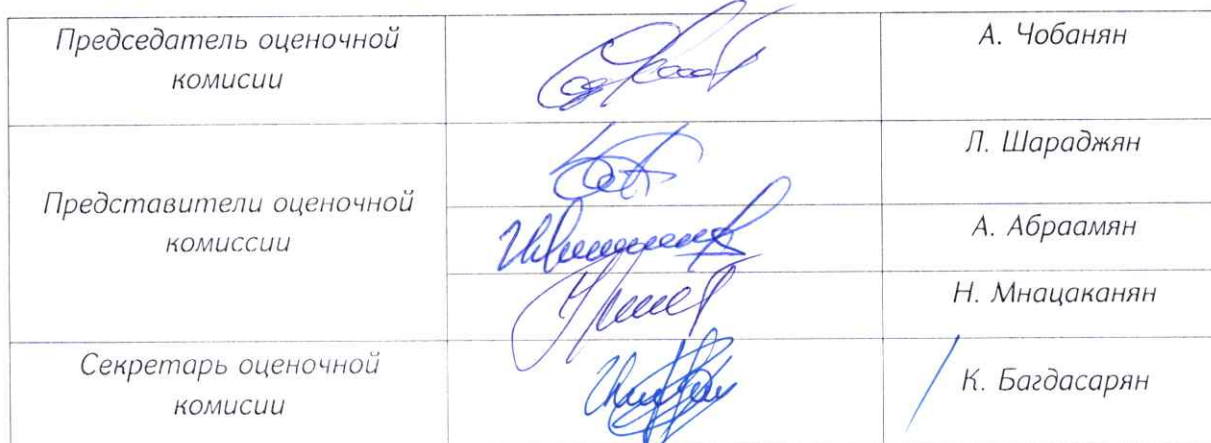 Председатель оценочной
комисии
А. Чобанян
Представители оценочной
комиссии
Л. Шараджян
А. Абраамян
Н. Мнацаканян
Секретарь оценочной
комисии
К. Багдасарян